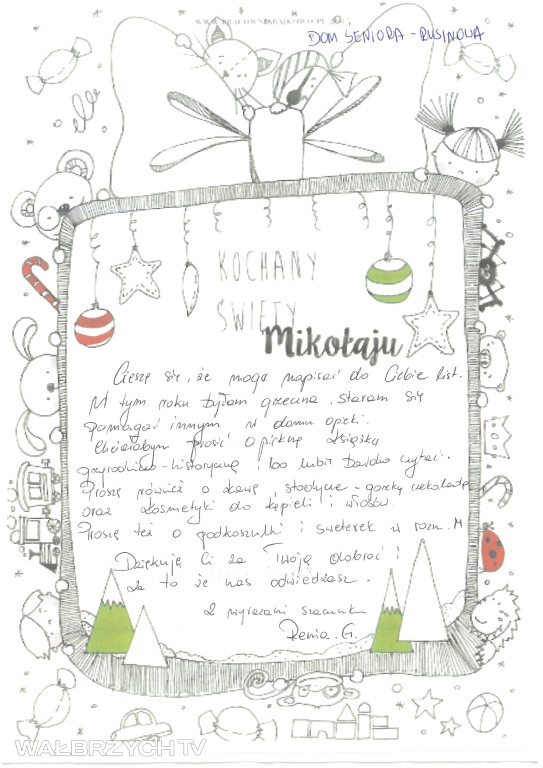 DOM SENIORA - RUSINOWA
KOCHANY
ŚWIĘTY
Mikołaju
Cieszę się, że mogę napisać do Ciebie list.
W tym roku byłam grzeczna, staram się
pomagać innym w domu opieki.
Chciałabym prosić o piękną książkę
przyrodniczo-historyczną, bo lubię bardzo czytać.
Proszę również o kawę, słodycze - gorzką czekoladę
oraz kosmetyki do kąpieli i włosów.
Proszę też o podkoszulki i sweterek w rozm. M
Dziękuję Ci za Twoją dobroć i
za to że nas odwiedzasz.
Z wyrazami szacunku
Renia. G.
WAŁBRZYCH TV